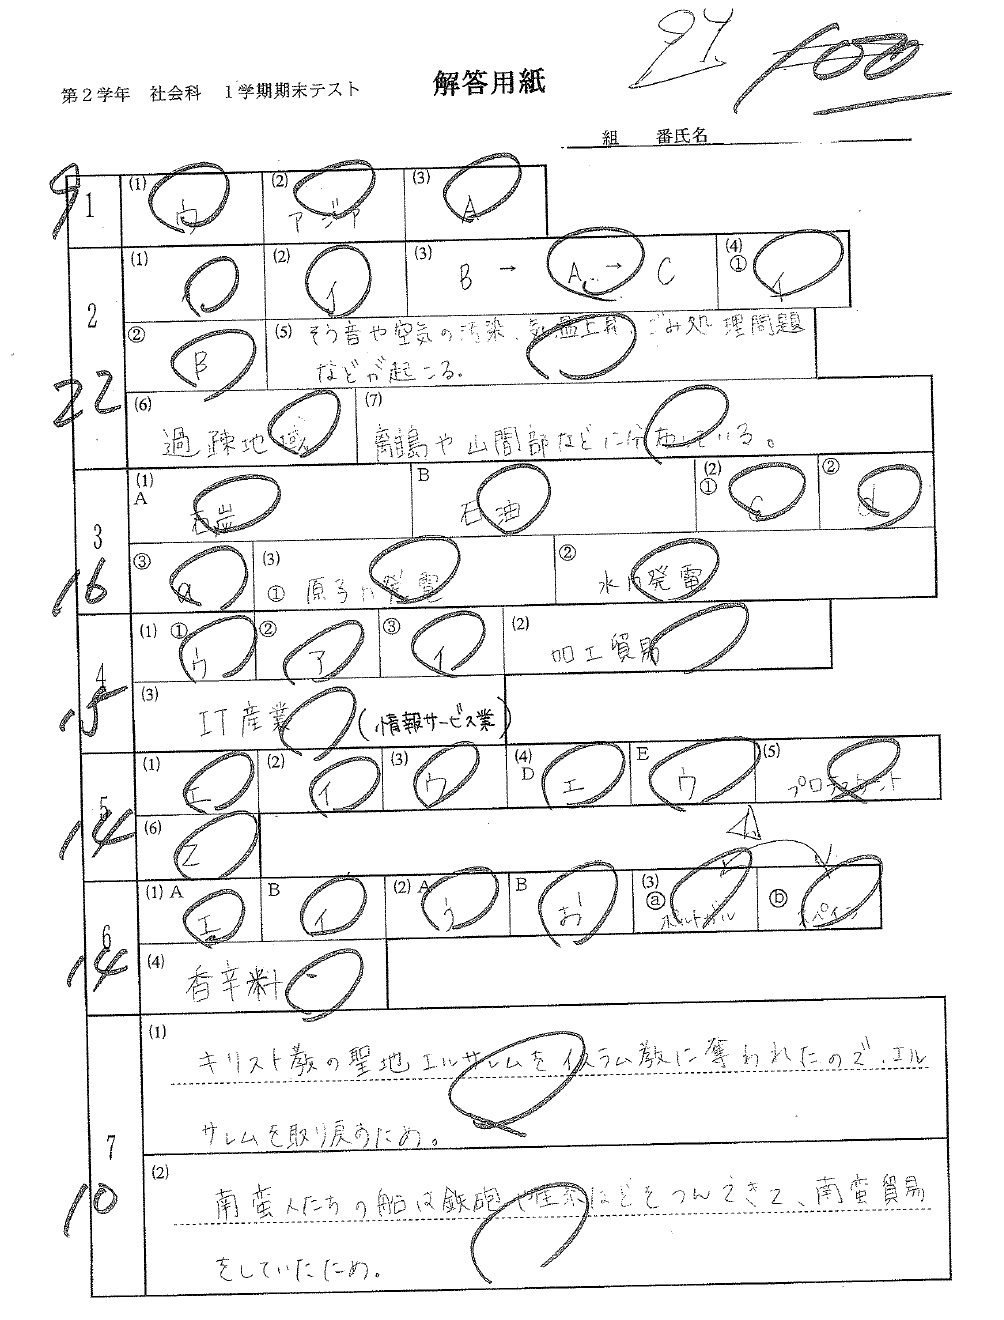 97 100
第2学年 社会科 1学期期末テスト 解答用紙
組 番氏名
9
1 (1) ウ (2) アジア (3) A
2 (1) (2) イ (3) B → A → C (4) ① イ
② B (5) そう音や空気の汚染、気温上昇、ごみ処理問題
などが起こる。
22
(6) 過疎地域 (7) 離島や山間部などに分布している。
3 (1) A 石炭 B 石油 (2) ① c ② d
16
③ a (3) ① 原子力発電 ② 水力発電
4 (1) ① ウ ② ア ③ イ (2) 加工貿易
15
(3) IT産業 (情報サービス業)
5 (1) エ (2) イ (3) ウ (4) D エ E ウ (5) プロテスタント
14
(6) 2
6 (1) A エ B イ (2) A う B お (3) ⓐ ポルトガル ⓑ スペイン
14
(4) 香辛料
7 (1) キリスト教の聖地エルサレムをイスラム教に奪われたので、エル
サレムを取り戻すため。
10
(2) 南蛮人たちの船は鉄砲や生糸などをつんできて、南蛮貿易
をしていたため。